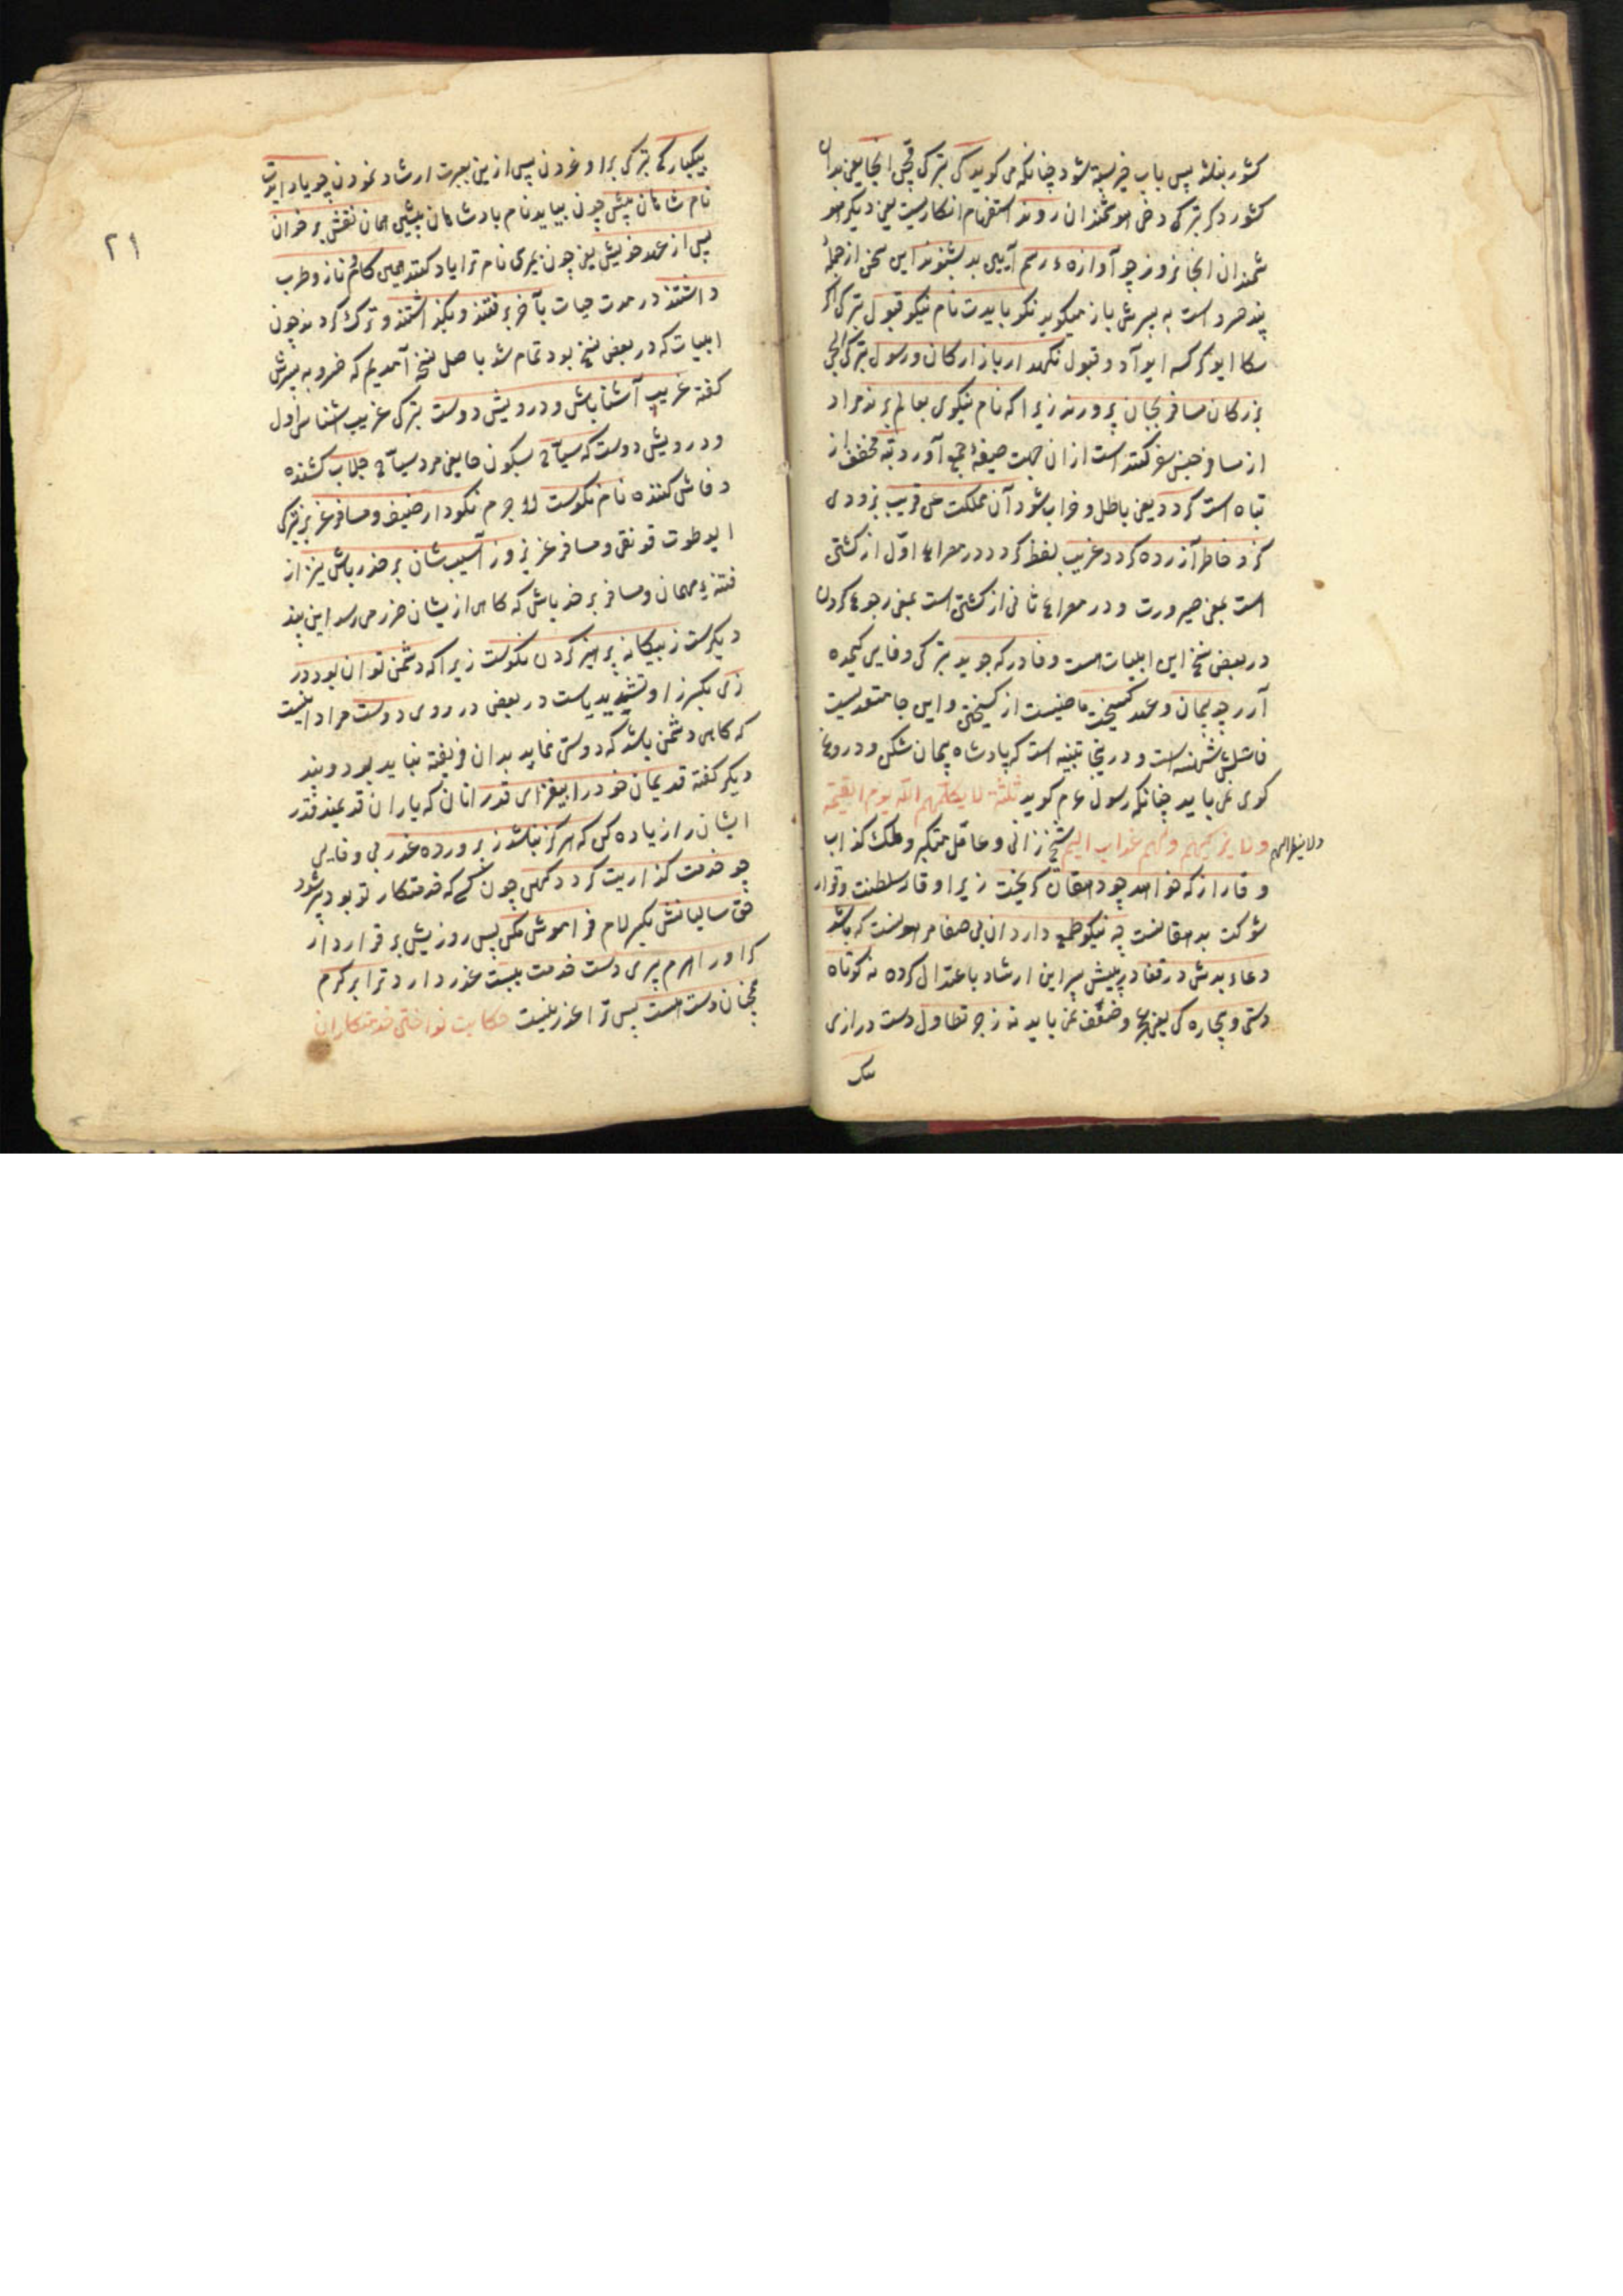 کشور بنلشه پس باب خیر بسته شود چنانکه می کوید کی بترکی قچن انجا یعنی بدان
کشور دکر بترکی دخی هوشمندان روند استفهام انکاریست یعنی دیکر هو
شمندان انجا نروند چو آوازه ء رسم آیین بد بشنوند این سخن از جملهٔ
پند خسرو است به پسرش باز میکوید نکو بایدت نام نیکو قبول بترکی اکر
سکا ایو کرکسه ایو آد و قبول نکهدار بازارکان و رسول بترکی ایلچی
بزرکان مسافر بجان پرورند زیرا که نام نیکوی بعالم برند مراد
از مسافر جنس سفر کننده است ازان جهت صیغهٔ جمع آورد تبه مخفف از
تباه است کردد یعنی باطل و خراب شود آن مملکت عن قریب بزودی
کزو خاطر آزرده کردد غریب لفظ کردد در مصراع اول از کشتن
است بمعنی صیرورت و در مصراع ثانی از کشتن است بمعنی رجوع کردن
در بعضی نسخ این ابیات هست وفا در که جوید بترکی وفایی کیمده
آرر چو پیمان و عهد کسیخت ماضیست از کسیختن و این جا متعدیست
فاعلش شهنشه است و درینجا تنبیه است که پادشاه پیمان شکن و دروغ
کوی نمی باید چنانکه رسول عم کوید ثلثة لا یکلمهم الله یوم القیمة
ولا ینظر الیهم
ولا یزکیهم ولهم عذاب الیم شیخ زانی وعاقل متکبر وملک کذاب
وقار از که خواهد چو دهقان کریخت زیرا وقار سلطنت و قرار
شوکت بدهقانست چه نیکو طمع دارد آن بی صفا مر اورست که باشد
دعاء بدش در قفا در پیش پس این ارشاد باعتدال کرده نه کوتاه
دستی و بیچاره کی یعنی عجز وضعف نمی باید نه زجر تطاول دست درازی
یک
۲۱
بیکبارکی بترکی براوغردن پس ازین بعبرت ارشاد نمودن چو یاد آیدت
نام شاهان پیش چون بیاید نام پادشاهان پیشین همان نقش بر خوان
پس از عهد خویش یعنی چون بمری نام ترا یاد کنند همین کام و ناز و طرب
داشتند در مدت حیات بآخر برفتند و بگذاشتند و ترک کردند چون
ابیات که در بعض نسخ بود تمام شد باصل نسخ آمدیم که خسرو به پسرش
کفته غریب آشنا باش و درویش دوست بترکی غریب شناس اول
ودرویش دوست که سیاح بسکون حا یعنی مرد سیاح جلاب کشنده
و فاش کننده نام نکوست لا جرم نکو دار ضیف و مسافر عزیز ترکی
ایو طوت قونقی و مسافر عزیز وز آسیب شان بر حذر باش نیز از
فتنهٔ مهمان و مسافر بر حذر باش که کاهی از یشان ضرر می رسد این پند
دیکرست ز بیکانه پرهیز کردن نکوست زیرا که دشمن توان بود در
زی بکسر زا و تشدید یاست در بعضی در روی دوست مراد اینست
که کاهی دشمن باشد که دوستی نماید بدان فریفته نباید بود و پند
دیکر کفته قدیمان خود را بیفزای قدر آنان که یاران قدیمند قدر
ایشان را زیاده کن که هرکز نباشد ز پرورده غدر بی وفایی
چو خدمت کذاریت کردد کهن چون کسی که خدمتکار تو بود پیر شود
حق سالیانش بکسر لام فراموش مکن پس روزیش بر قرار دار
کرا ورا هرم پیری دست خدمت ببست عذر دارد ترا بر کرم
همچنان دست هست پس ترا عذر نیست حکایت نواختن خدمتکاران